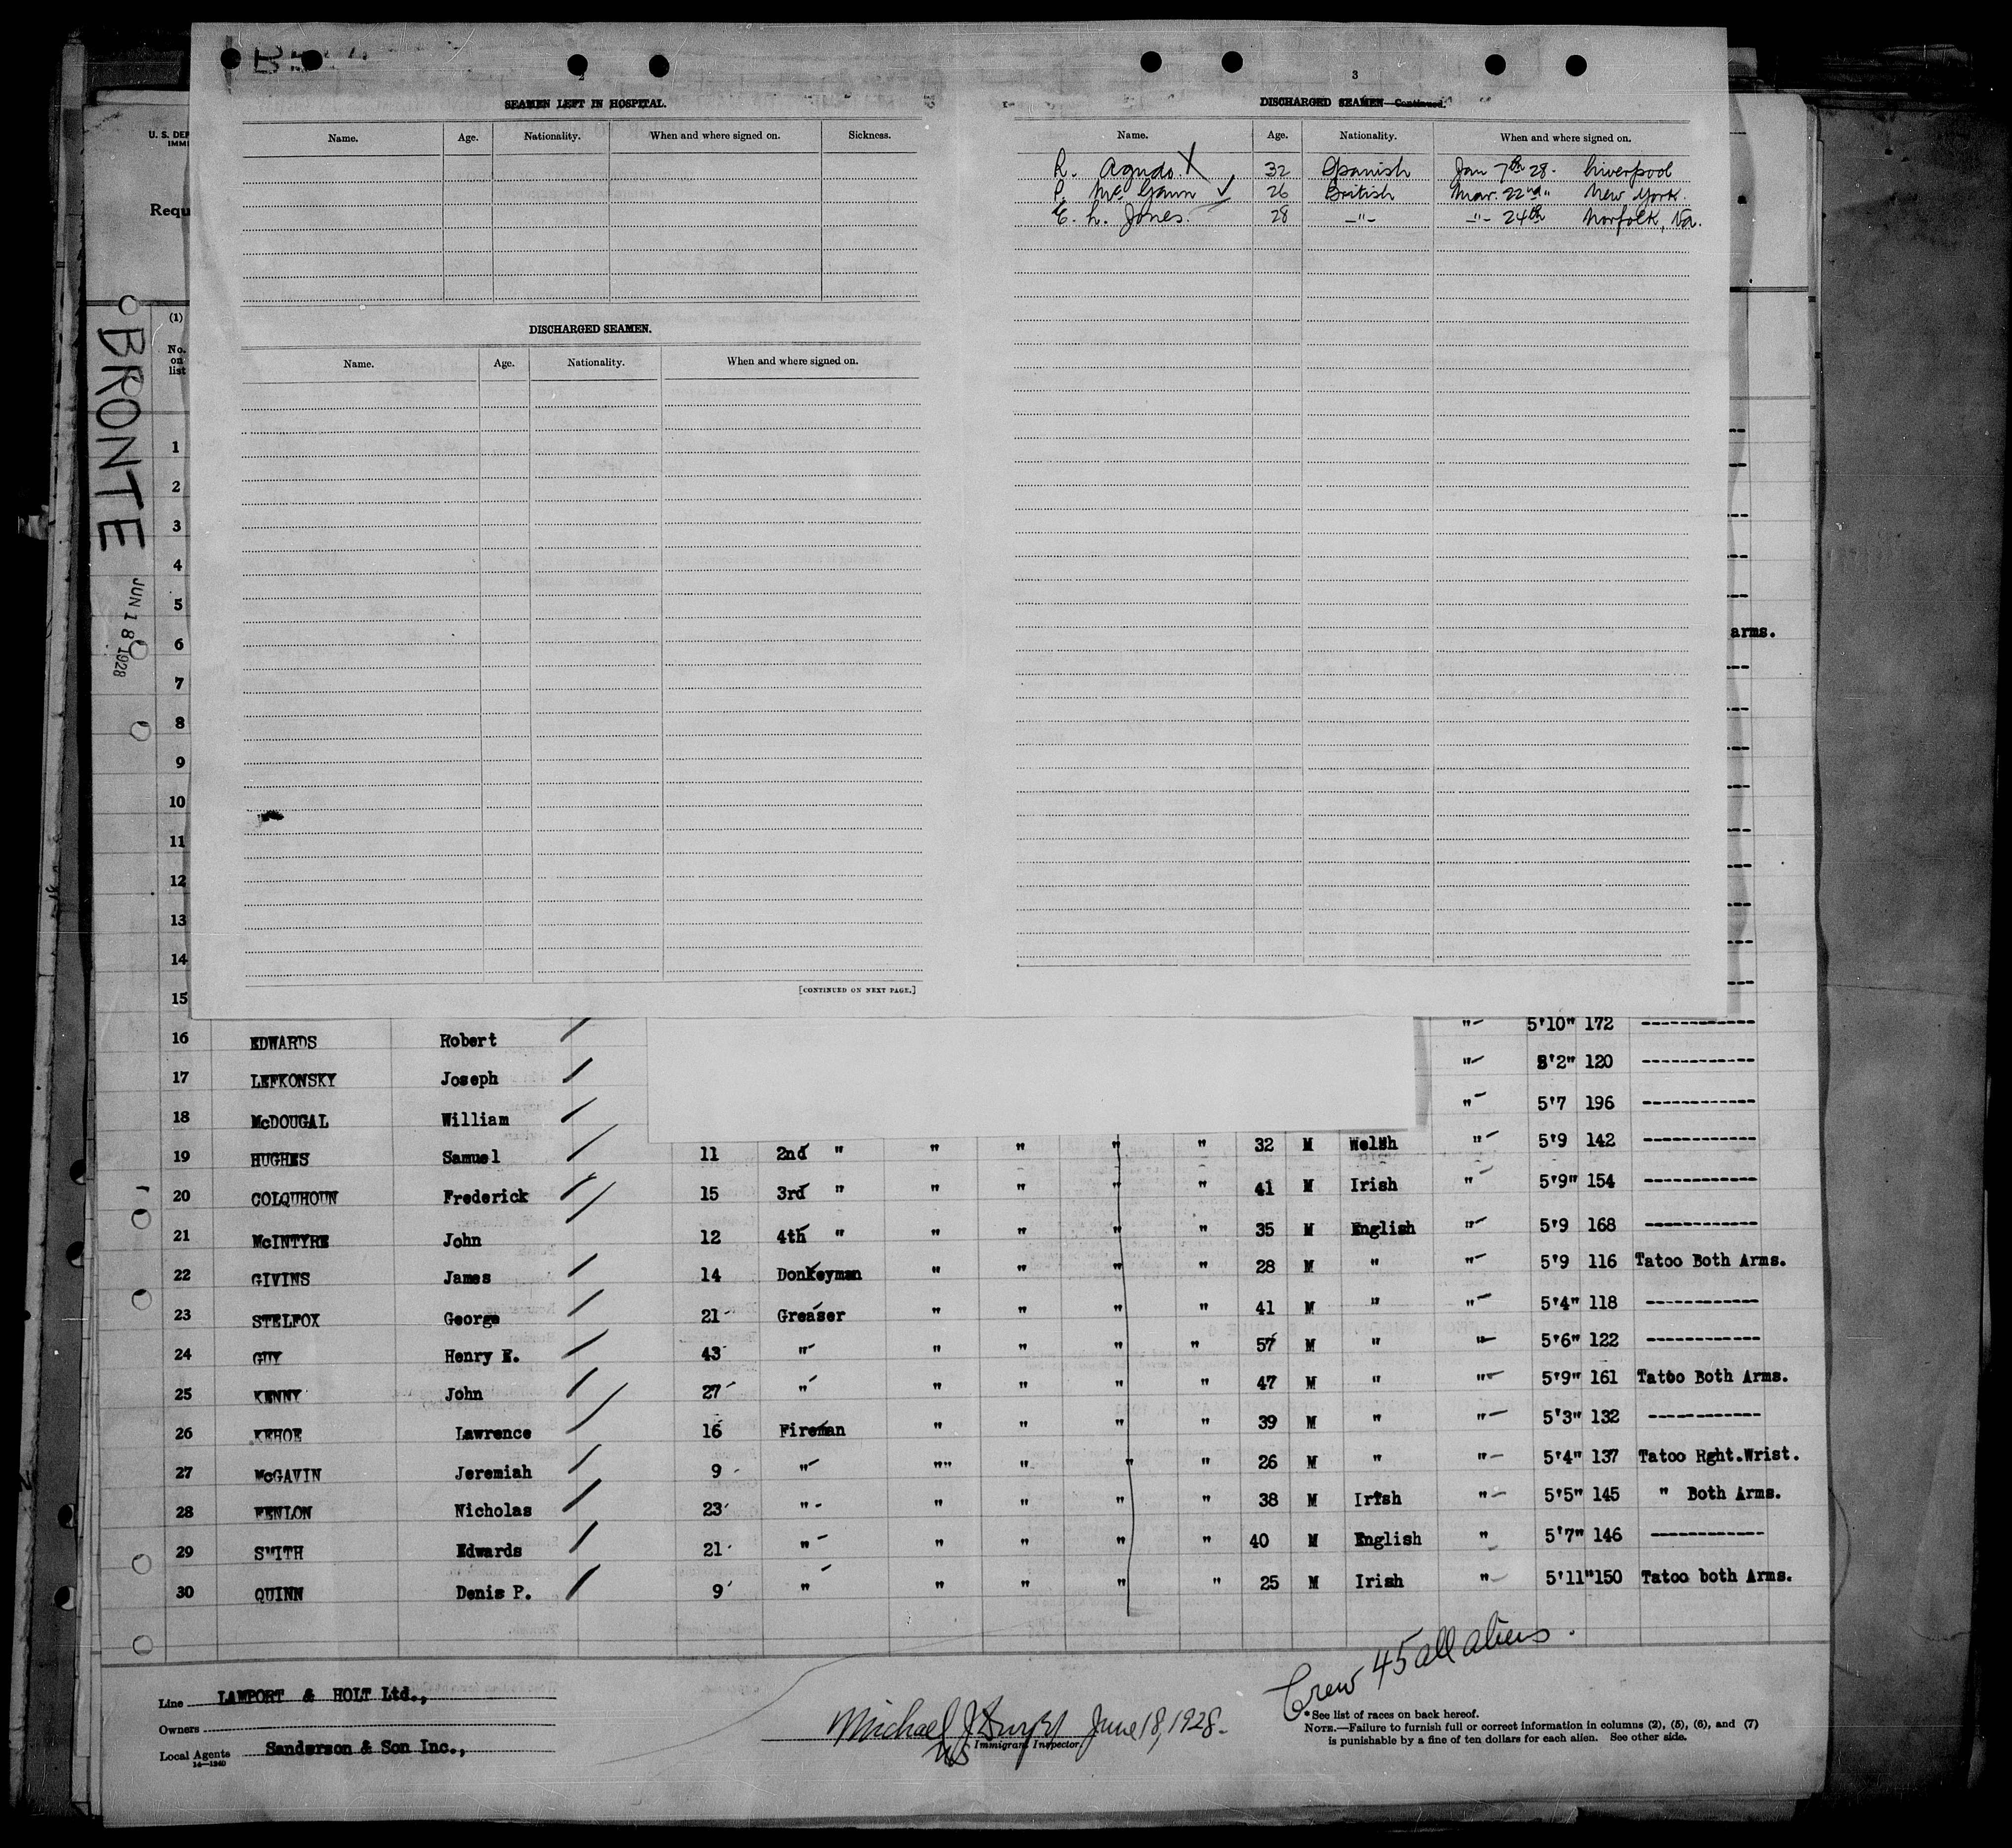 2
SEAMEN LEFT IN HOSPITAL.
Name. Age. Nationality. When and where signed on. Sickness.
DISCHARGED SEAMEN.
Name. Age. Nationality. When and where signed on.
[CONTINUED ON NEXT PAGE.]
3
DISCHARGED SEAMEN—Continued.
Name. Age. Nationality. When and where signed on.
R. Agudo. X 32 Spanish Jan 7th 28. Liverpool
P. McGann ✓ 26 British Mar. 22nd " New York.
E. L. Jones. 28 -"- -"- 24th Norfolk, Va.
U. S. DEP
IMMI
Requ
BRONTE
JUN 18 1928
(1)
No. on list
1
2
3
4
5
6 arms.
7
8
9
10
11
12
13
14
15
16 EDWARDS Robert " 5'10" 172 ------------
17 LEFKONSKY Joseph " 5'2" 120 ------------
18 McDOUGAL William " 5'7 196 ------------
19 HUGHES Samuel 11 2nd " " " " " 32 M Welsh " 5'9 142 ------------
20 COLQUHOUN Frederick 15 3rd " " " " " 41 M Irish " 5'9" 154 ------------
21 McINTYRE John 12 4th " " " " " 35 M English " 5'9 168 ------------
22 GIVINS James 14 Donkeyman " " " " 28 M " " 5'9 116 Tatoo Both Arms.
23 STELFOX George 21 Greaser " " " " 41 M " " 5'4" 118 ------------
24 GUY Henry E. 43 " " " " " 57 M " " 5'6" 122 ------------
25 KENNY John 27 " " " " " 47 M " " 5'9" 161 Tatoo Both Arms.
26 KEHOE Lawrence 16 Fireman " " " " 39 M " " 5'3" 132 ------------
27 McGAVIN Jeremiah 9 " "" " " " 26 M " " 5'4" 137 Tatoo Rght.Wrist.
28 FENLON Nicholas 23 " " " " " 38 M Irish " 5'5" 145 " Both Arms.
29 SMITH Edwards 21 " " " " " 40 M English " 5'7" 146 ------------
30 QUINN Denis P. 9 " " " " " 25 M Irish " 5'11" 150 Tatoo both Arms.
Crew 45 all aliens.
Line LAMPORT & HOLT Ltd.,
Owners
Local Agents Sanderson & Son Inc.,
14—1240
Michael J. June 18, 1928.
US Immigrant Inspector.
* See list of races on back hereof.
NOTE.—Failure to furnish full or correct information in columns (2), (5), (6), and (7)
is punishable by a fine of ten dollars for each alien. See other side.